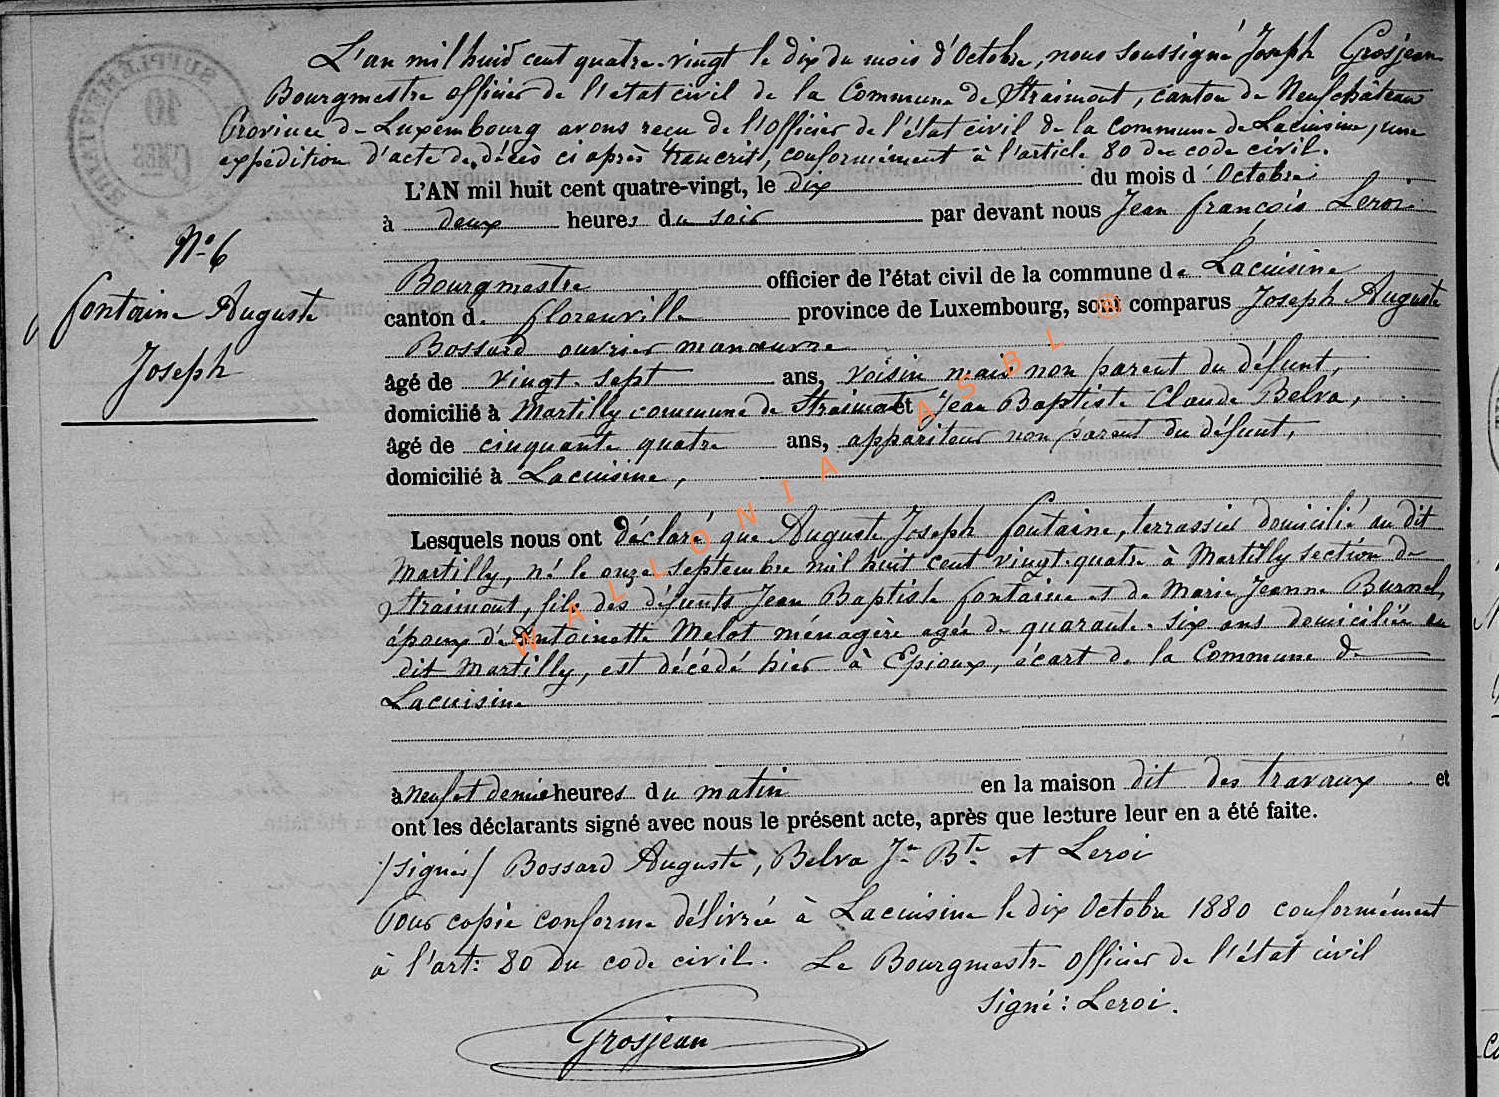 L'an mil huit cent quatre-vingt le dix du mois d'Octobre, nous soussigné Joseph Grosjean
Bourgmestre officier de l'état civil de la Commune de Straimont, canton de Neufchâteau
Province de Luxembourg avons reçu de l'Officier de l'état civil de la commune de Lacuisine, une
expédition d'acte de décès ci après trancrit, conformément à l'article 80 du code civil.
L'AN mil huit cent quatre-vingt, le dix du mois d'Octobre
à deux heures du soir par devant nous Jean françois Leroi
Bourgmestre officier de l'état civil de la commune de Lacuisine
canton de florenville province de Luxembourg, sont comparus Joseph Auguste
Bossard ouvrier manœuvre
âgé de vingt-sept ans, voisin mais non parent du défunt,
domicilié à Martilly commune de Straimont et Jean Baptiste Claude Belva,
âgé de cinquante quatre ans, appariteur non parent du défunt,
domicilié à Lacuisine,
Lesquels nous ont déclaré que Auguste Joseph fontaine, terrassier domicilié au dit
Martilly, né le onze septembre mil huit cent vingt-quatre à Martilly section de
Straimont, fils des défunts Jean Baptiste fontaine et de Marie Jeanne Burnel,
époux de Antoinette Melot ménagère agée de quarante-six ans domiciliée au
dit Martilly, est décédé hier à Epioux, écart de la Commune de
Lacuisine
à neuf et demie heures du matin en la maison dit des travaux et
ont les déclarants signé avec nous le présent acte, après que lecture leur en a été faite.
/signé/ Bossard Auguste, Belva Jn Bte et Leroi
Pour copie conforme délivrée à Lacuisine le dix Octobre 1880 conformément
à l'art: 80 du code civil. Le Bourgmestre officier de l'état civil
signé: Leroi.
Grosjean
No 6
fontaine Auguste
Joseph
WALLONIA ASBL ®